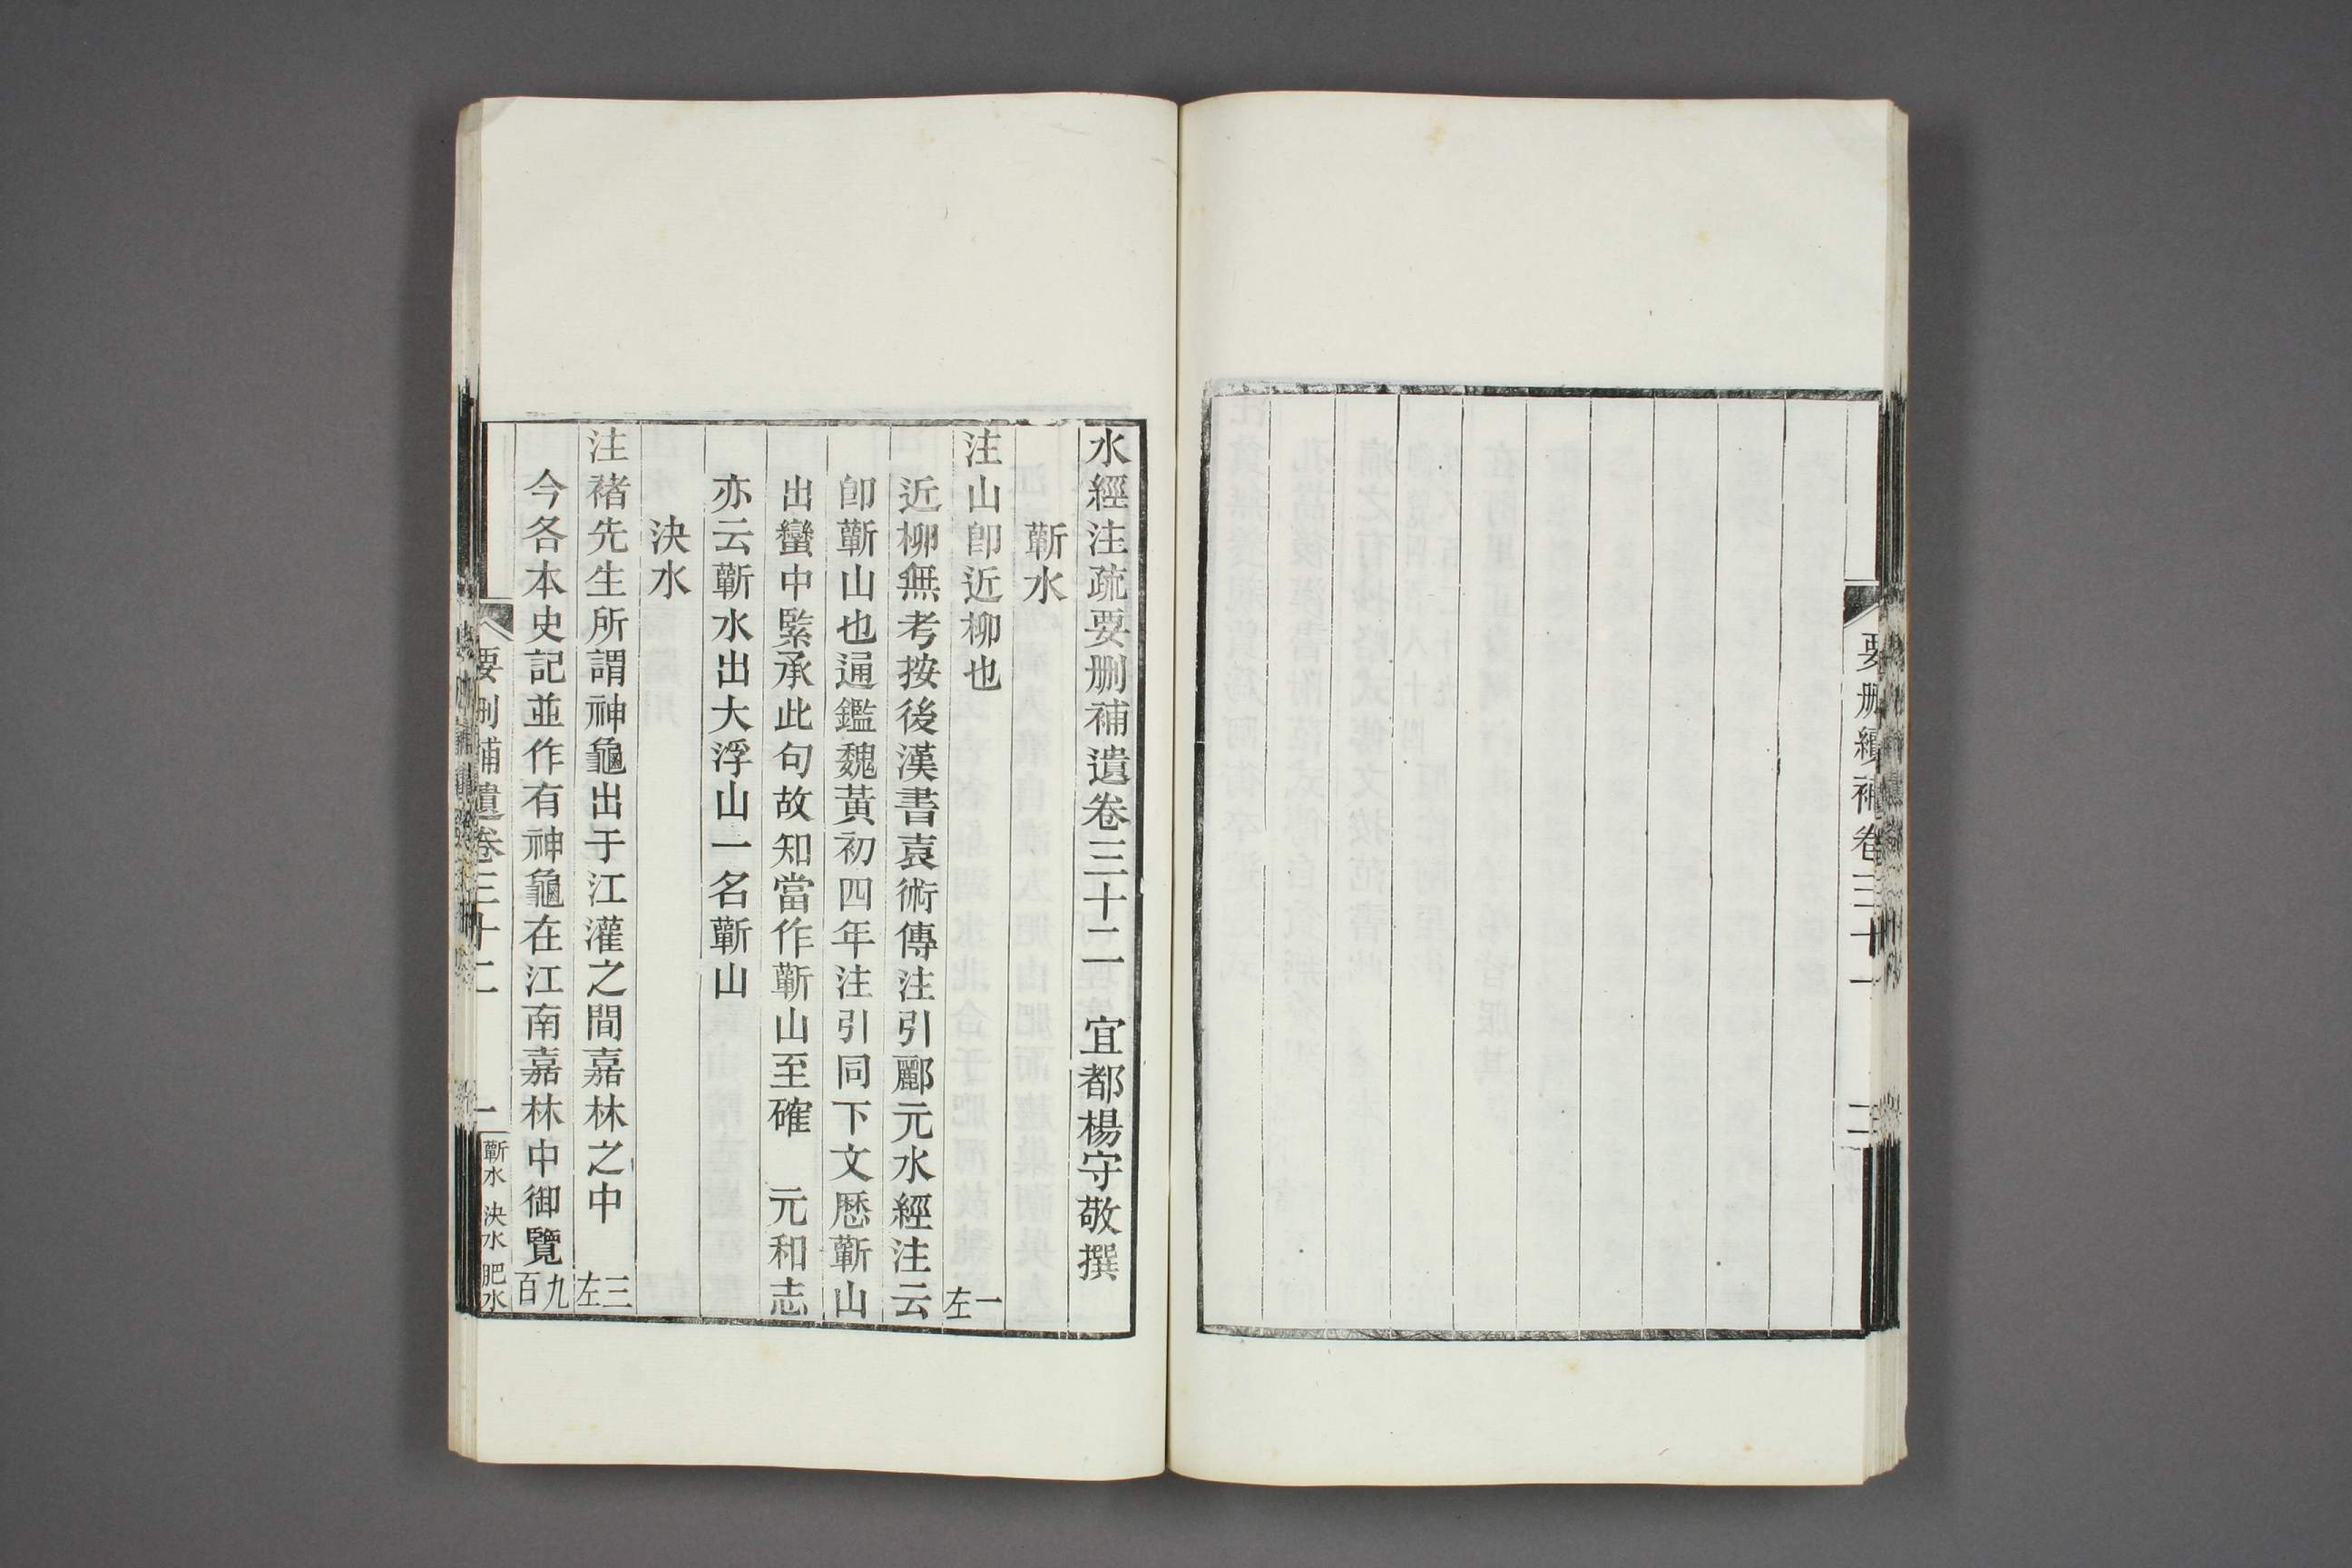 要刪續補卷三十一
二
水經注疏要刪補遺卷三十二　宜都楊守敬撰
蘄水
注山卽近柳也　一左
近柳無考按後漢書袁術傳注引酈元水經注云
卽蘄山也通鑑魏黃初四年注引同下文歷蘄山
出蠻中緊承此句故知當作蘄山至確　元和志
亦云蘄水出大浮山一名蘄山
決水
注褚先生所謂神龜出于江灌之間嘉林之中　三左
今各本史記並作有神龜在江南嘉林中御覽九百
要刪補遺卷三十二
一
蘄水　決水　肥水